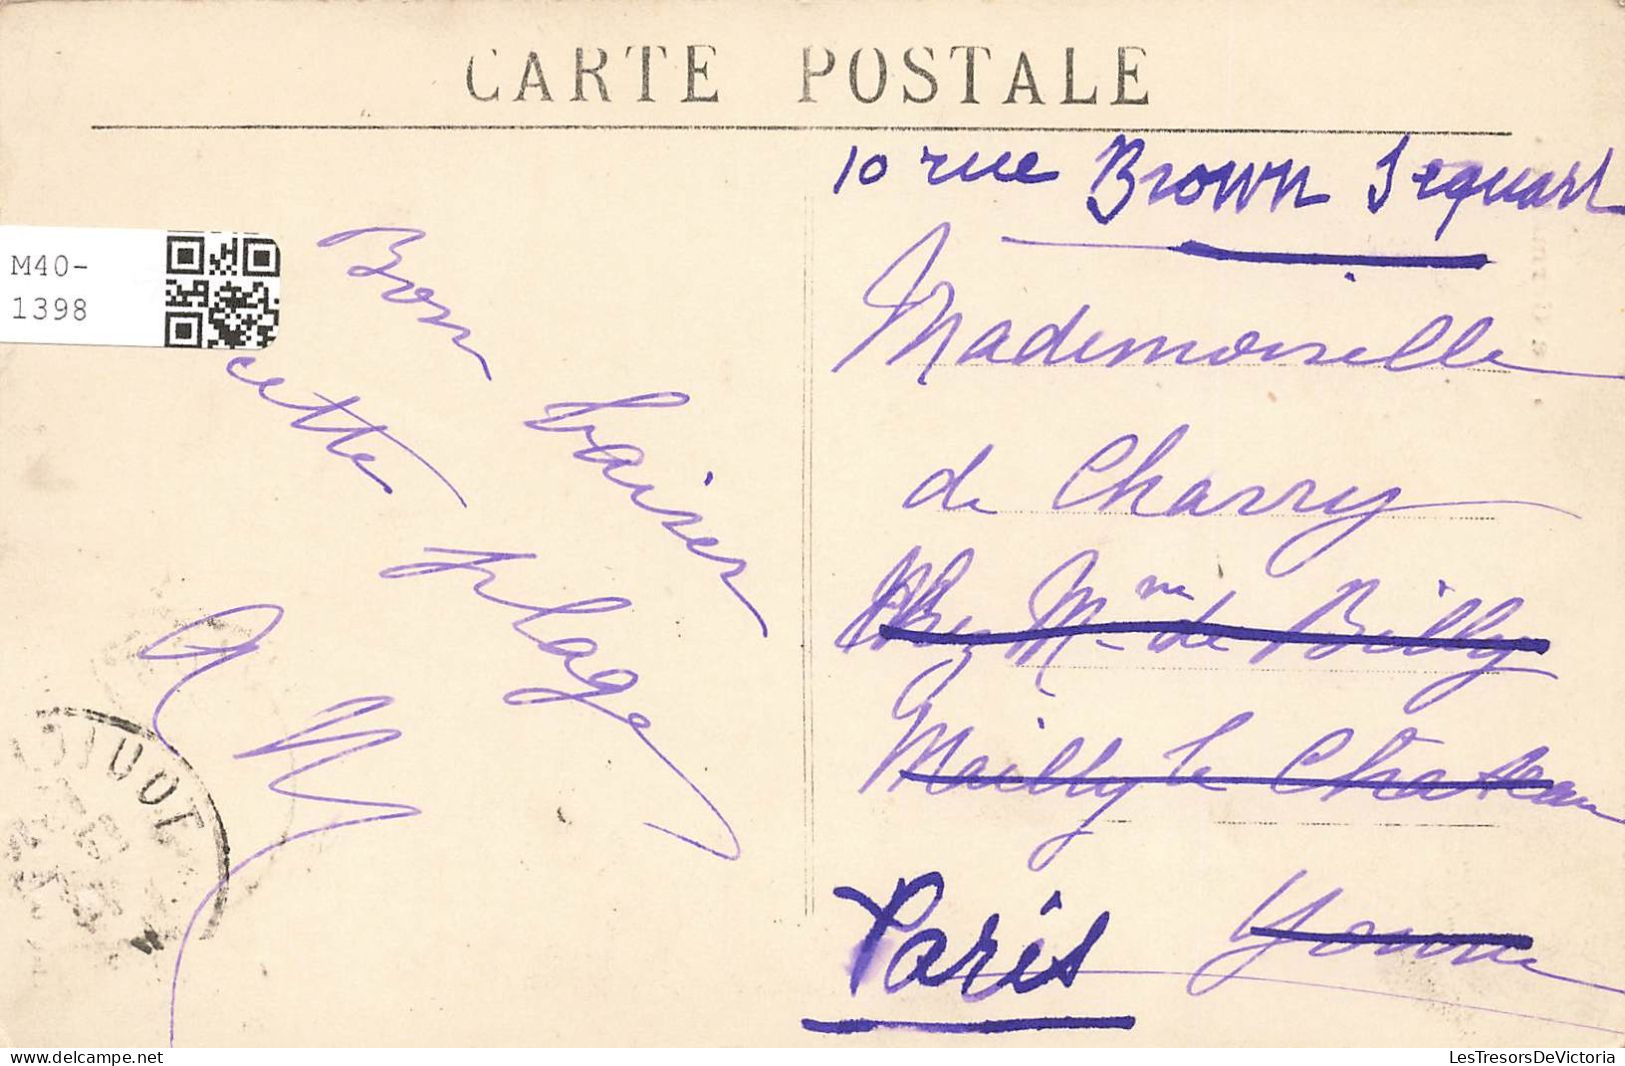 CARTE POSTALE
M40-
1398
Bon baiser
cette plage
10 rue Brown Sequart
Mademoiselle
de Charry
Chez Mme de Billy
Mailly le Chateau
Yonne
Paris
LesTresorsDeVictoria
https://www.delcampe.net